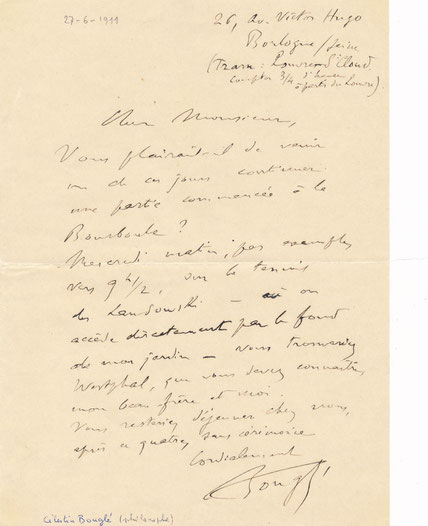 27-6-1911
26, av. Victor Hugo
Boulogne / Seine
(Tram : Louvre - St Cloud
compter 3/4 d'heure
à partir du Louvre).
Cher Monsieur,
Vous plairait-il de venir
un de ces jours continuer
une partie commencée à la
Bourboule ?
Mercredi matin, par exemple,
vers 9 h 1/2, sur le tennis
des Landowski — où on
accède directement par le fond
de mon jardin — vous trouveriez
Westphal, que vous devez connaître,
mon beau frère et moi.
Vous resteriez déjeuner chez nous,
après ce quatre, sans cérémonie
Cordialement
C Bouglé
Célestin Bouglé (philosophe)